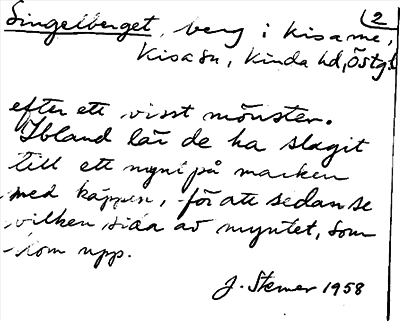 2
Singelberget, berg i Kisa sn,
Kisa sn, Kinda hd, Östgl.
efter ett visst mönster.
Ibland lär de ha slagit
till ett mynt på marken
med käppen, för att sedan se
vilken sida av myntet, som
kom upp.
J. Stemer 1958